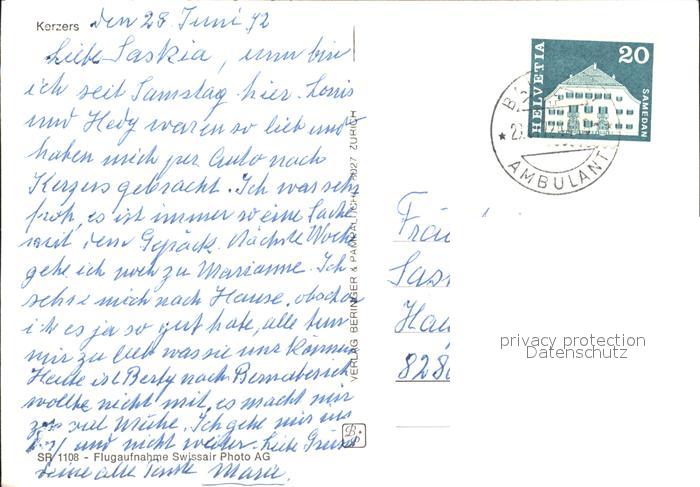 Kerzers den 28. Juni 72
Liebe Saskia, nun bin
ich seit Samstag hier. Louis
und Hedy waren so lieb und
haben mich per Auto nach
Kerzers gebracht. Ich war sehr
froh, es ist immer so eine Sache
mit dem Gepäck. Nächste Woche
gehe ich noch zu Marianne. Ich
sehne mich nach Hause, obschon
ich es ja so gut habe, alle tun
mir zu lieb was sie nur können
Heute ist Berty nach
wollte nicht mit, es macht mir
zu viel Mühe. Ich gehe nur ins
und nicht weiter. Liebe Grüsse
SR 1108 - Flugaufnahme Swissair Photo AG
deine alte Tante Marie.
VERLAG BERINGER & PAMPALUCHI, 8027 ZURICH
HELVETIA 20
SAMEDAN
AMBULANT
Fräu
Sas
Hau
828
privacy protection
Datenschutz